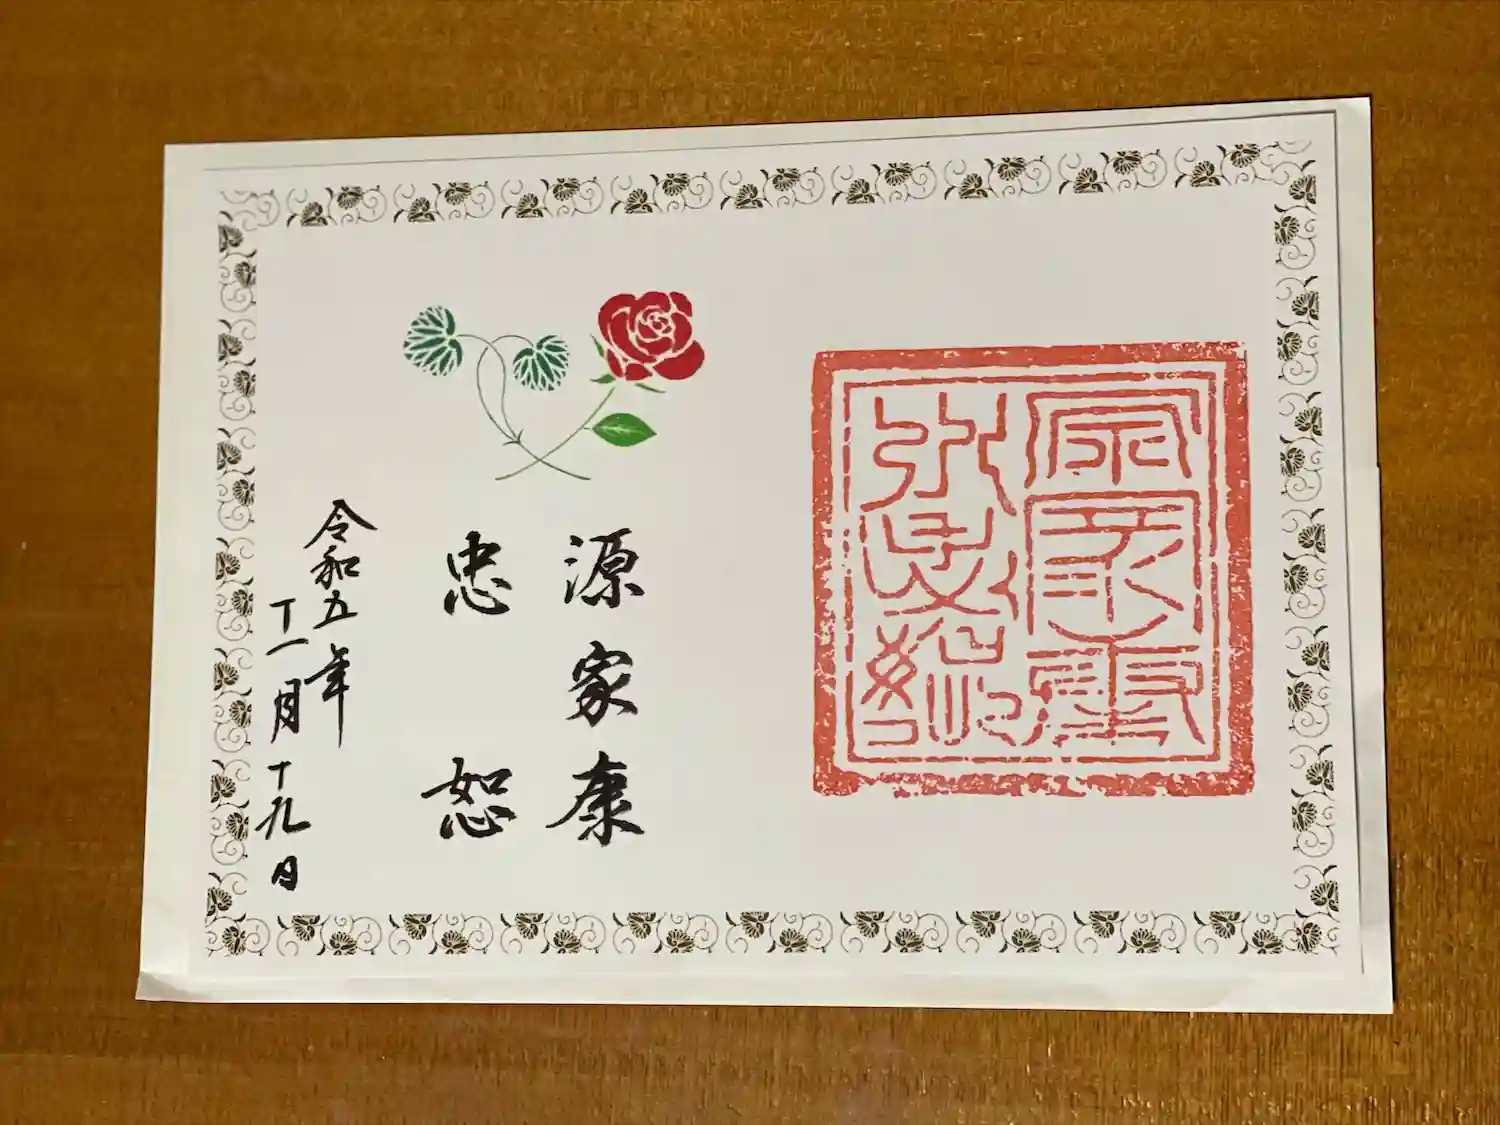 源家康
忠恕
令和五年
十一月十九日